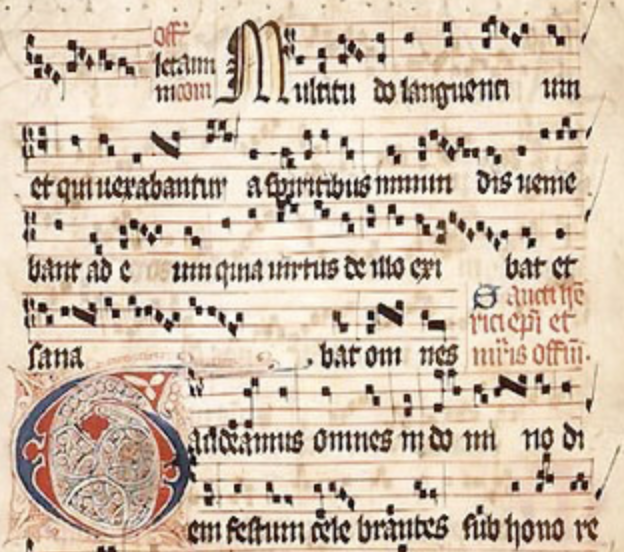 off
letami
ni com
Multitu do languenti um
et qui uexabantur a spiritibus inmun dis uenie
bant ad e um quia uirtus de illo exi bat et
sana bat om nes
Sancti he
rici epi et
mris offm.
Gaudeamus omnes in do mi no di
em festum cele brantes sub hono re